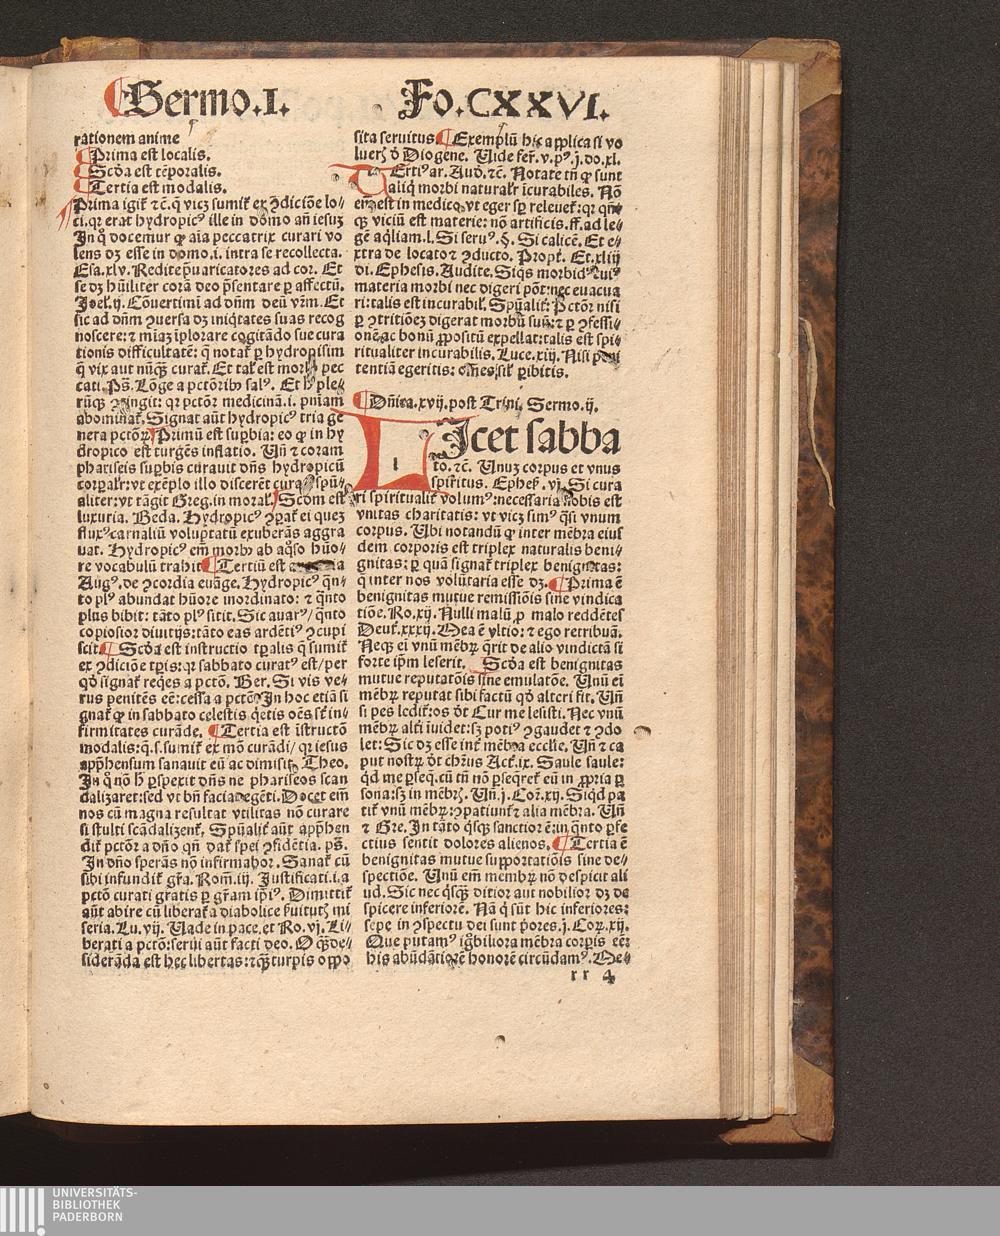 Sermo.I. Fo.CXXVI.
rationem anime
Prima est localis.
Scđa est tẽporalis.
Tertia est modalis.
Prima igit̃ ⁊c̃.
ci.qꝛ erat hydropicꝰ ille in domo añ iesuȝ
Jn q̃ docemur ꝙ aĩa peccatrix curari vo
lens dȝ esse in domo.i. intra se recollecta.
Esa.xlv. Redite p̱uaricatores ad cor. Et
se dȝ hũiliter corã deo p̃sentare ꝑ affectũ.
Joel.ij. Cõuertimĩ ad dñm deũ vr̃m. Et
sic ad dñm ꝯuersa dȝ iniq̃tates suas recog
noscere:⁊ mĩaȝ ĩplorare cogitãdo sue cura
tionis difficultatẽ: q̃ notat̃ ꝑ hydropisim
q̃ vix aut nũq̃ꝫ curat̃. Et tal̃ est morbꝰ pec
cati. Ps̃. Lõge a pctõribꝰ salꝰ.
rũq̃ꝫ ꝯtingit: qꝛ pctõr medicinã.i. pñiam
abominat̃. Signat aũt hydropicꝰ tria ge
nera pctõꝝ Primũ est suꝑbia: eo ꝙ in hy
dropico est turgẽs inflatio. Vñ ⁊ coram
phariseis suꝑbis curauit dñs hydropicũ
corꝑalr̃:vt exẽplo illo discerẽt
aliter:vt tãgit Greg.in moral̃. Scđm est
luxuria. Beda. Hydropicꝰ ꝯꝑat̃ ei queȝ
fluxꝰ carnaliũ voluptatũ exuberãs aggra
uat. Hydropicꝰ em̃ morbꝰ ab aq̃so hũo⸗
re vocabulũ trahit Tertiũ est
Augꝰ. de ꝯcordia euãge. Hydropicꝰ q̃n⸗
to plꝰ abundat hũore inordinato: ⁊ q̃nto
plus bibit: tãto plꝰ sitit. Sic auarꝰ/ q̃nto
copiosior diuitijs:tãto eas ardẽtiꝰ ꝯcupi
scit. Scđa est instructio tꝑalis q̃ sumit̃
ex ꝯdiciõe tꝑis:qꝛ sabbato curatꝰ est/per
qđ signat̃ req̃es a pctõ. Ber. Si vis ve⸗
rus penitẽs eẽ:cessa a pctõ. Jn hoc etiã si
gnat̃ ꝙ in sabbato celestis q̃etis oẽs st̃ in⸗
firmitates curãde. Tertia est ĩstructõ
modalis:q̃.s.sumit̃ ex mõ curãdi/ qꝛ iesus
app̃hensum sanauit eũ ac dimisit. Theo.
Jn q̃ nõ h̃ ꝑspexit dñs ne phariseos scan
dalizaret:sed vt bñ faciat egẽti. Docet em̃
nos cũ magna resultat vtilitas nõ curare
si stulti scãdalizent̃. Spũalit̃ aũt app̃hen
dit̃ pctõr a dño qñ dat̃ spei ꝯfidẽtia. ps̃.
Jn dño sperãs nõ infirmabor. Sanat̃ cũ
sibi infundit̃ gr̃a. Rom̃.iij. Justificati.i.a
pctõ curati gratis ꝑ gr̃am ip̃iꝰ. Dimittit̃
aũt abire cũ liberat̃ a diabolice
seria.Lu.vij. Vade in pace.et Ro.vj. Li⸗
berati a pctõ:serui aũt facti deo. O q̃ꝫ de⸗
siderãda est hec libertas:⁊ q̃ꝫ turpis oppo
sita seruitus. Exemplũ hic applica si vo
luerꝭ đ Diogene. Vide fer̃.v.pꝰ.j.do.xl.
Tertiꝰ ar. Auđ.⁊c̃. Notate tñ ꝙ sunt
aliq̃ morbi naturalr̃ ĩcurabiles. Nõ
em̃ est in medico vt eger sꝑ releuet̃:qꝛ qñ⸗
q̃ꝫ viciũ est materie: nõ artificis. ff. ad le⸗
gẽ aq̃liam.l. Si seruꝰ.§. Si calicẽ. Et e⸗
xtra de locato ⁊ ꝯducto. Propt̃. Et.xliij
di. Ephesis. Audite. Siq̃s morbidꝰ
materia morbi nec digeri põt:nec euacua
ri:talis est incurabil̃. Spũalit̃: Pctõr nisi
ꝑ ꝯtritiõeȝ digerat morbũ suũ:⁊ ꝑ ꝯfessi⸗
onẽ:ac bonũ ꝓpositũ expellat:talis est spi⸗
ritualiter incurabilis. Luce.xiij. Nisi peni
tentiã egeritis: oẽs sil̃ ꝑibitis.
Dñica.xvij.post Trini. Sermo.ij.
LJcet sabba
to.⁊c̃. Vnuȝ corpus et vnus
spiritus. Ephes̃. vj. Si cura
ri spiritualit̃ volumꝰ:necessaria nobis est
vnitas charitatis: vt vicȝ simꝰ q̃si vnum
corpus. Vbi notandũ ꝙ inter mẽbra eius
dem corporis est triplex naturalis beni⸗
gnitas: ꝑ quã signat̃ triplex benignitas:
q̃ inter nos volũtaria esse dȝ. Prima ẽ
benignitas mutue remissiõis sine vindica
tiõe. Ro.xij. Nulli malũ ꝓ malo reddẽtes
Deut̃.xxxij. Mea ẽ vltio: ⁊ ego retribuã.
Neq̃ꝫ ei vnũ mẽbꝝ q̃rit de alio vindictã si
forte ip̃m leserit. Scđa est benignitas
mutue reputatõis sine emulatõe. Vnũ eĩ
mẽbꝝ reputat sibi factũ qđ alteri fit. Vñ
si pes ledit̃:os đt Cur me lesisti. Nec vnũ
mẽbꝝ altĩ ĩuidet:sȝ potiꝰ ꝯgaudet ⁊ ꝯdo
let: Sic dȝ esse int̃ mẽbra eccl̃ie. Vñ ⁊ ca
put nostꝝ đt chr̃us Act̃.ix. Saule saule:
qđ me ꝑseq̃.cũ tñ nõ ꝑseq̃ret̃ eũ in ꝓpria ꝑ
sona:sȝ in mẽbrꝭ. Vñ.j. Cor̃.xij. Siq̃d pa
tit̃ vnũ mẽbꝝ:ꝯpatiunt̃ ⁊ alia mẽbra. Vñ
⁊ Gre. Jn tãto q̃sq̃ꝫ sanctior ẽ:in q̃nto ꝑfe
ctius sentit dolores alienos. Tertia ẽ
benignitas mutue supportatiõis sine de⸗
spectiõe. Vnũ em̃ membꝝ nõ despicit ali
ud. Sic nec q̃sq̃ꝫ ditior aut nobilior dȝ de
spicere inferiorẽ. Nã q̃ sũt hic inferiores:
sepe in ꝯspectu dei sunt p̃ores.j. Cor̃.xij.
Que putamꝰ igñbiliora mẽbra corꝑis eẽ:
his abũdãtiorẽ honorẽ circũdamꝰ. De⸗
rr 4
UNIVERSITÄTS-
BIBLIOTHEK
PADERBORN